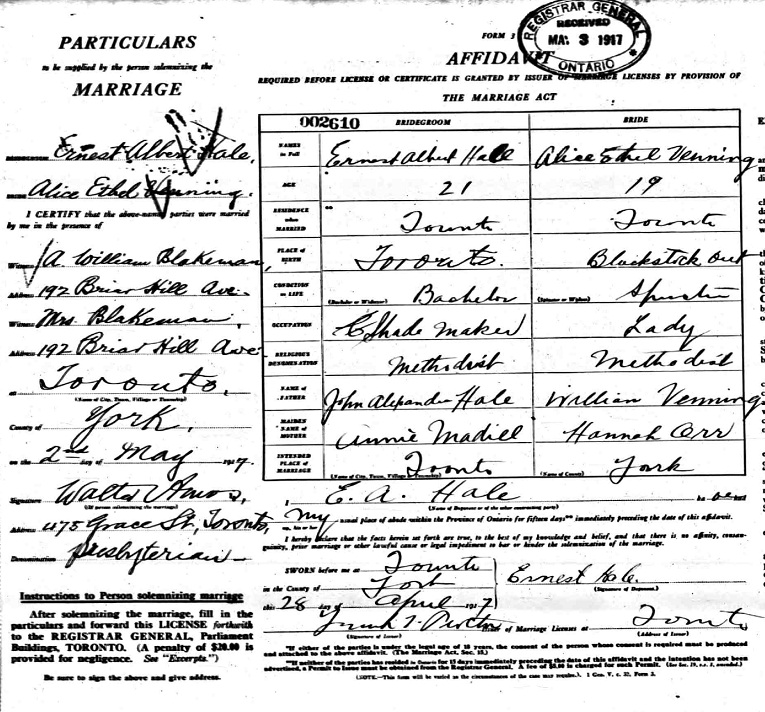 PARTICULARS
to be supplied by the person solemnizing the
MARRIAGE
Ernest Albert Hale,
Alice Ethel Venning.
I CERTIFY that the above-named parties were married
by me in the presence of
Witness A. William Blakeman,
Address 192 Briar Hill Ave.
Witness Mrs. Blakeman,
Address 192 Briar Hill Ave
at Toronto,
(Name of City, Town, Village or Township)
County of York,
on the 2nd day of May 1917.
Signature Walter Amos,
(Of person solemnizing the marriage)
Address 475 Grace St, Toronto,
Denomination Presbyterian
Instructions to Person solemnizing marriage
After solemnizing the marriage, fill in the
particulars and forward this LICENSE forthwith
to the REGISTRAR GENERAL, Parliament
Buildings, TORONTO. (A penalty of $20.00 is
provided for negligence. See "Excerpts.")
Be sure to sign the above and give address.
FORM 3
REGISTRAR GENERAL
RECEIVED
MA. 3 1917
ONTARIO
AFFIDAVIT
REQUIRED BEFORE LICENSE OR CERTIFICATE IS GRANTED BY ISSUER OF MARRIAGE LICENSES BY PROVISION OF
THE MARRIAGE ACT
002610 BRIDEGROOM BRIDE
NAMES in Full Ernest Albert Hale Alice Ethel Venning
AGE 21 19
RESIDENCE when MARRIED Toronto Toronto
PLACE of BIRTH Toronto. Blackstock Ont
CONDITION in LIFE (Bachelor or Widower) Bachelor (Spinster or Widow) Spinster
OCCUPATION Shade Maker Lady
RELIGIOUS DENOMINATION Methodist Methodist
NAME of FATHER John Alexander Hale William Venning
MAIDEN NAME of MOTHER Annie Madill Hannah Orr
INTENDED PLACE of MARRIAGE (Name of City, Town, Village or Township) Toronto (Name of County) York
I E. A. Hale
(Name of Deponent or of the other contracting party)
my usual place of abode within the Province of Ontario for fifteen days** immediately preceding the date of this affidavit.
my, his or her
I hereby declare that the facts herein set forth are true, to the best of my knowledge and belief, and that there is no affinity, consan-
guinity, prior marriage or other lawful cause or legal impediment to bar or hinder the solemnization of the marriage.
SWORN before me at Toronto
in the County of York
this 28 day of April 1917
Ernest Hale.
(Signature of Deponent)
(Signature of Issuer)
of Marriage Licenses at Toronto
(Address of Issuer)
*If either of the parties is under the legal age of 18 years, the consent of the person whose consent is required must be produced
and attached to the above affidavit. (The Marriage Act, Sec. 15.)
**If neither of the parties has resided in Ontario for 15 days immediately preceding the date of this affidavit and the intention has not been
advertised, a Permit to Issue must be obtained from the Registrar General. A fee of $5.00 is charged for such Permit.
(NOTE.—This form will be varied as the circumstances of the case may require.) 1 Geo. V. c. 32, Form 3.